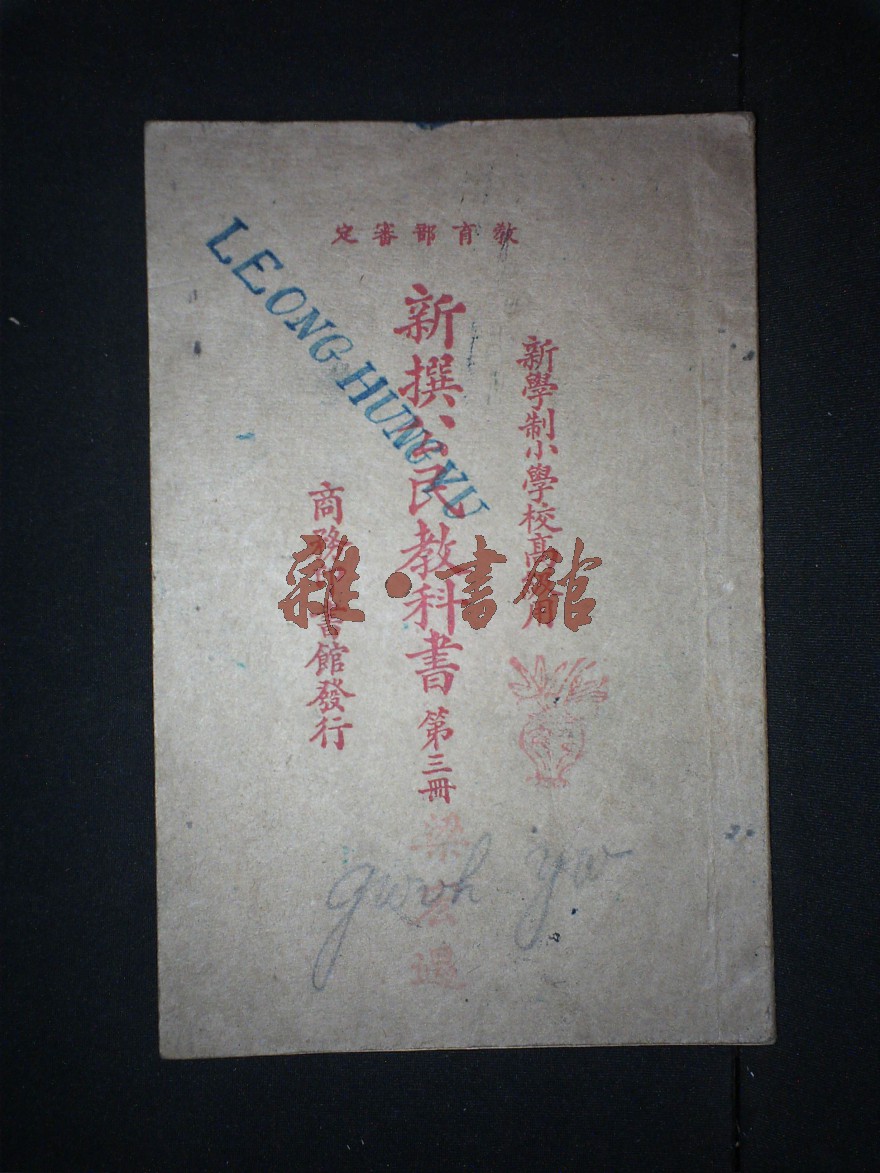 教育部審定
新學制小學校高級用
新撰公民教科書 第三冊
商務印書館發行
LEONG HUNG YU
雜·書館
gwoh yw